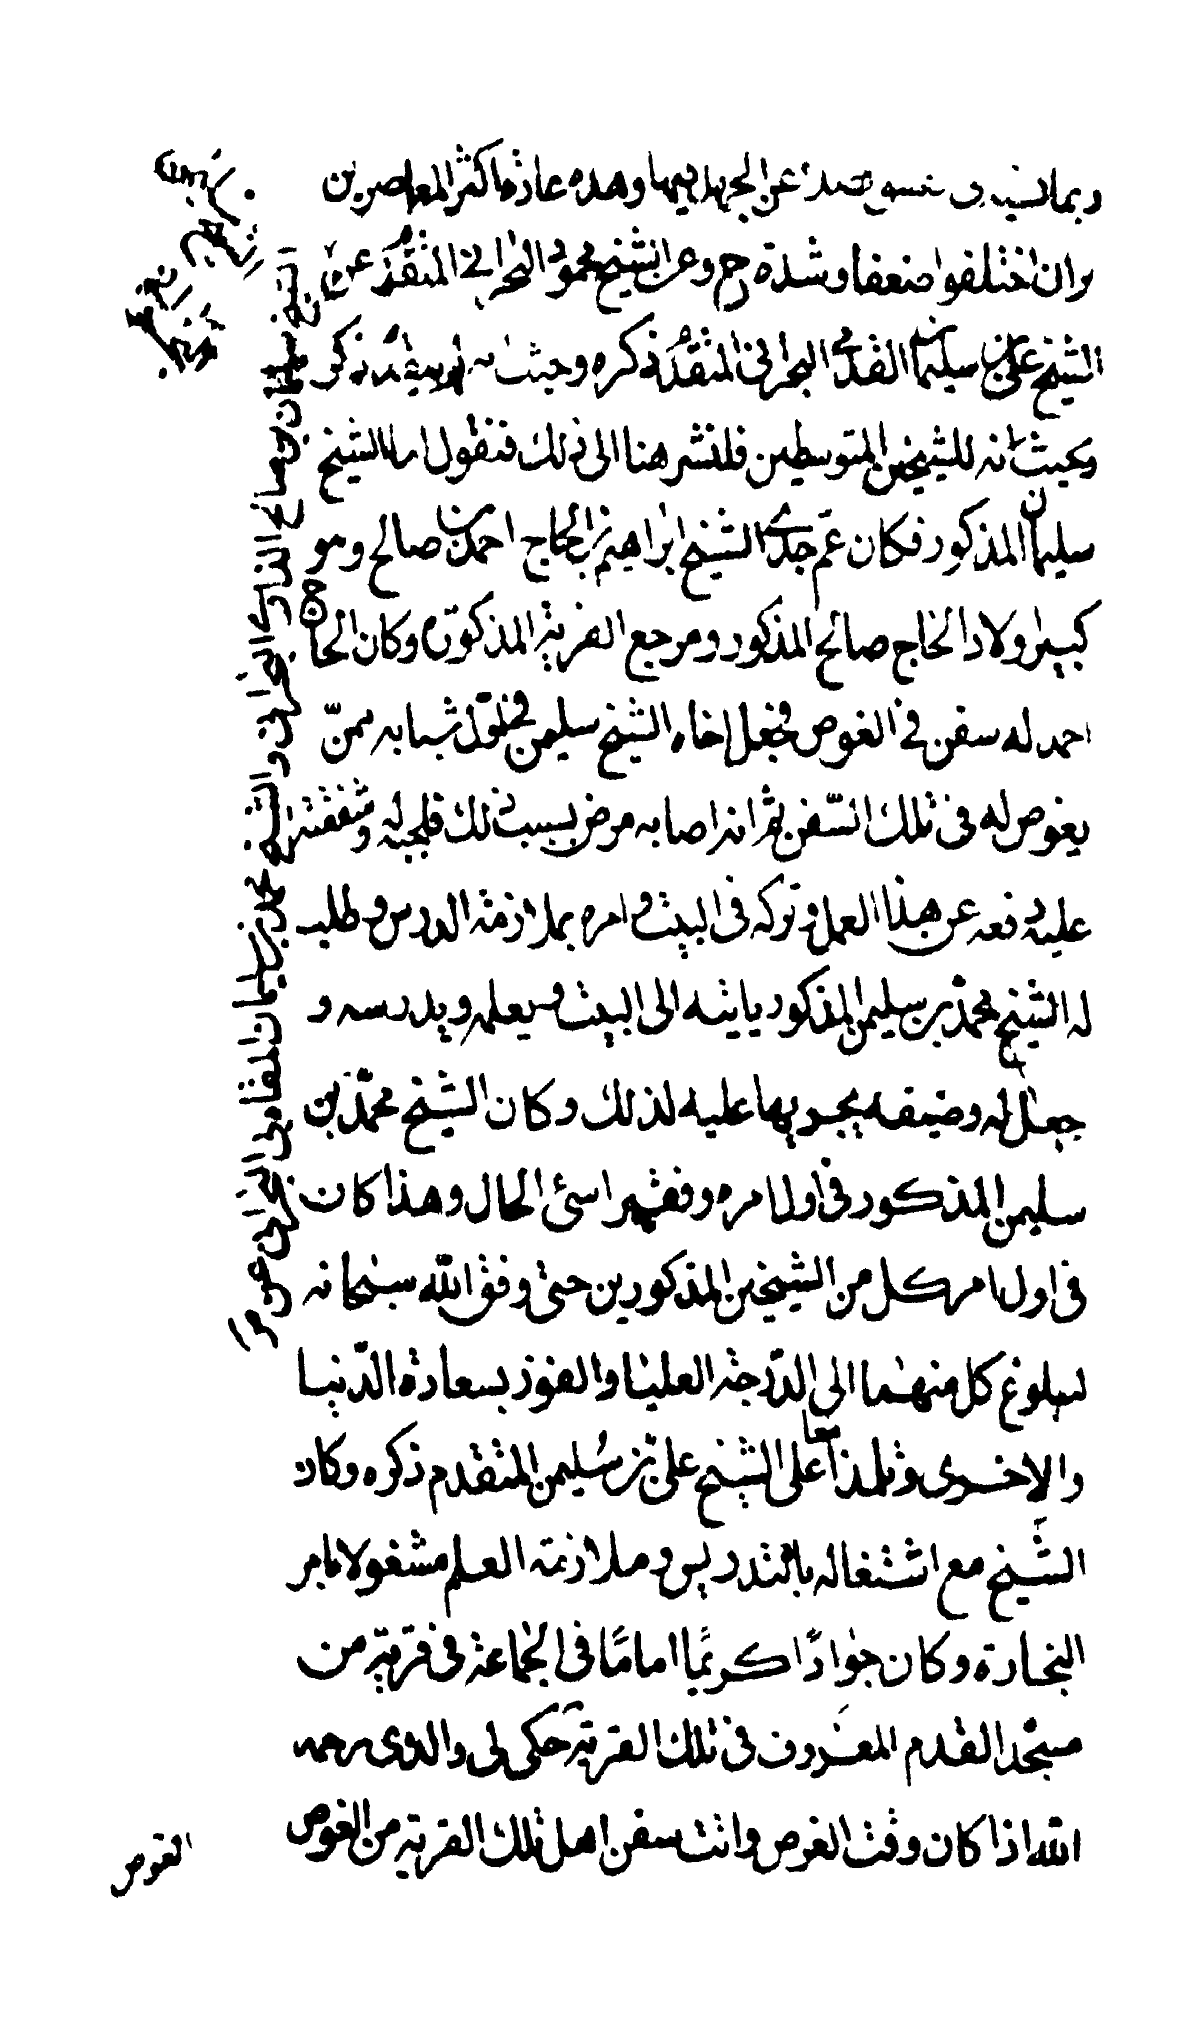 عن الجريها فيها وهذه عادة اكثر المعاصرين
وان اختلفوا ضعفا وشدة وعن الشيخ محمود البحراني المتقدم عن
الشيخ علي بن سليمان القدمي البحراني المتقدم ذكره وحيث ذكر
وحيث انه للشيخين المتوسطين فلنشر هنا الى ذلك فنقول اما الشيخ
سليمان المذكور فكان عم جدي الشيخ ابراهيم بن الحاج احمد بن صالح وهو
كبير اولاد الحاج صالح المذكور ومرجع القرية المذكورة وكان الحاج
احمد له سفن في الغوص فجعل اخاه الشيخ سليمن في اول شبابه ممن
يغوص له في تلك السفن ثم انه اصابه مرض بسبب ذلك فلحبه له وشفقته
عليه دفعه عن هذا العمل وتركه في البيت وامره بملازمة الدرس وطلب
له الشيخ محمد بن سليمن المذكور ياتيه الى البيت ويعلمه ويدرسه و
جعل له وضيفه يجريها عليه لذلك وكان الشيخ محمد بن
سليمن المذكور في اول امره وفقهير اسئ الحال وهذا كان
في اول امر كل من الشيخين المذكورين حتى وفق الله سبحانه
لبلوغ كل منهما الى الدرجة العليا والفوز بسعادة الدنيا
والاخرى وتلمذا معا على الشيخ علي بن سليمن المتقدم ذكره وكان
الشيخ مع اشتغاله بالتدريس وملازمته العلم مشغولا بامر
التجارة وكان جوادا كريما اماما في الجماعة في قريته من
مسجد القدم المعروف في تلك القرية حكى لي والدي رحمه
الله اذا كان وقت الغوص واتت سفن اهل تلك القرية من الغوص
الغوص
الشيخ سليمان بن صالح الدرازي البحراني والشيخ محمد بن سليمان المقابي البحراني عن